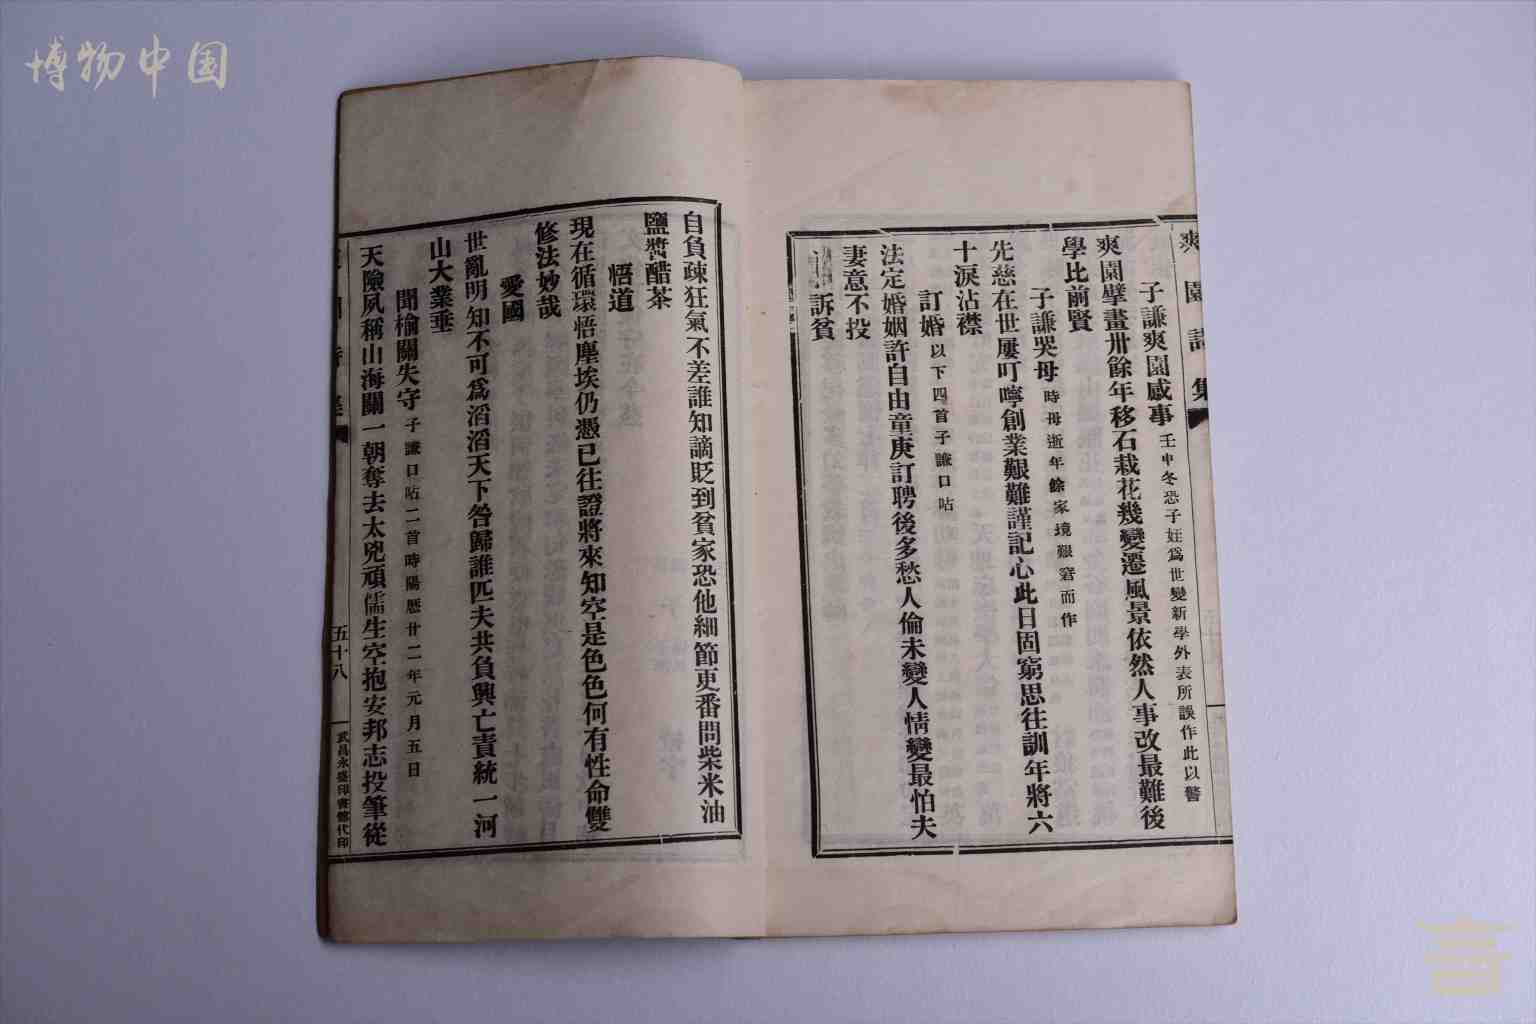 博物中国
爽園詩集
子謙爽園感事 壬申冬恐子姪爲世變新學外表所誤作此以警
爽園擘畫卅餘年移石栽花幾變遷風景依然人事改最難後
學比前賢
子謙哭母 時母逝年餘家境艱窘而作
先慈在世屢叮嚀創業艱難謹記心此日固窮思往訓年將六
十淚沾襟
訂婚 以下四首子謙口呫
法定婚姻許自由童庚訂聘後多愁人倫未變人情變最怕夫
妻意不投
訴貧
自負疎狂氣不差誰知謫貶到貧家恐他細節更番問柴米油
鹽醬醋茶
悟道
現在循環悟塵埃仍憑已往證將來知空是色色何有性命雙
修法妙哉
愛國
世亂明知不可爲滔滔天下咎歸誰匹夫共負興亡責統一河
山大業垂
聞榆關失守 子謙口呫二首時陽曆廿二年元月五日
天險夙稱山海關一朝奪去太兇頑儒生空抱安邦志投筆從
五十八
武昌永盛印書館代印